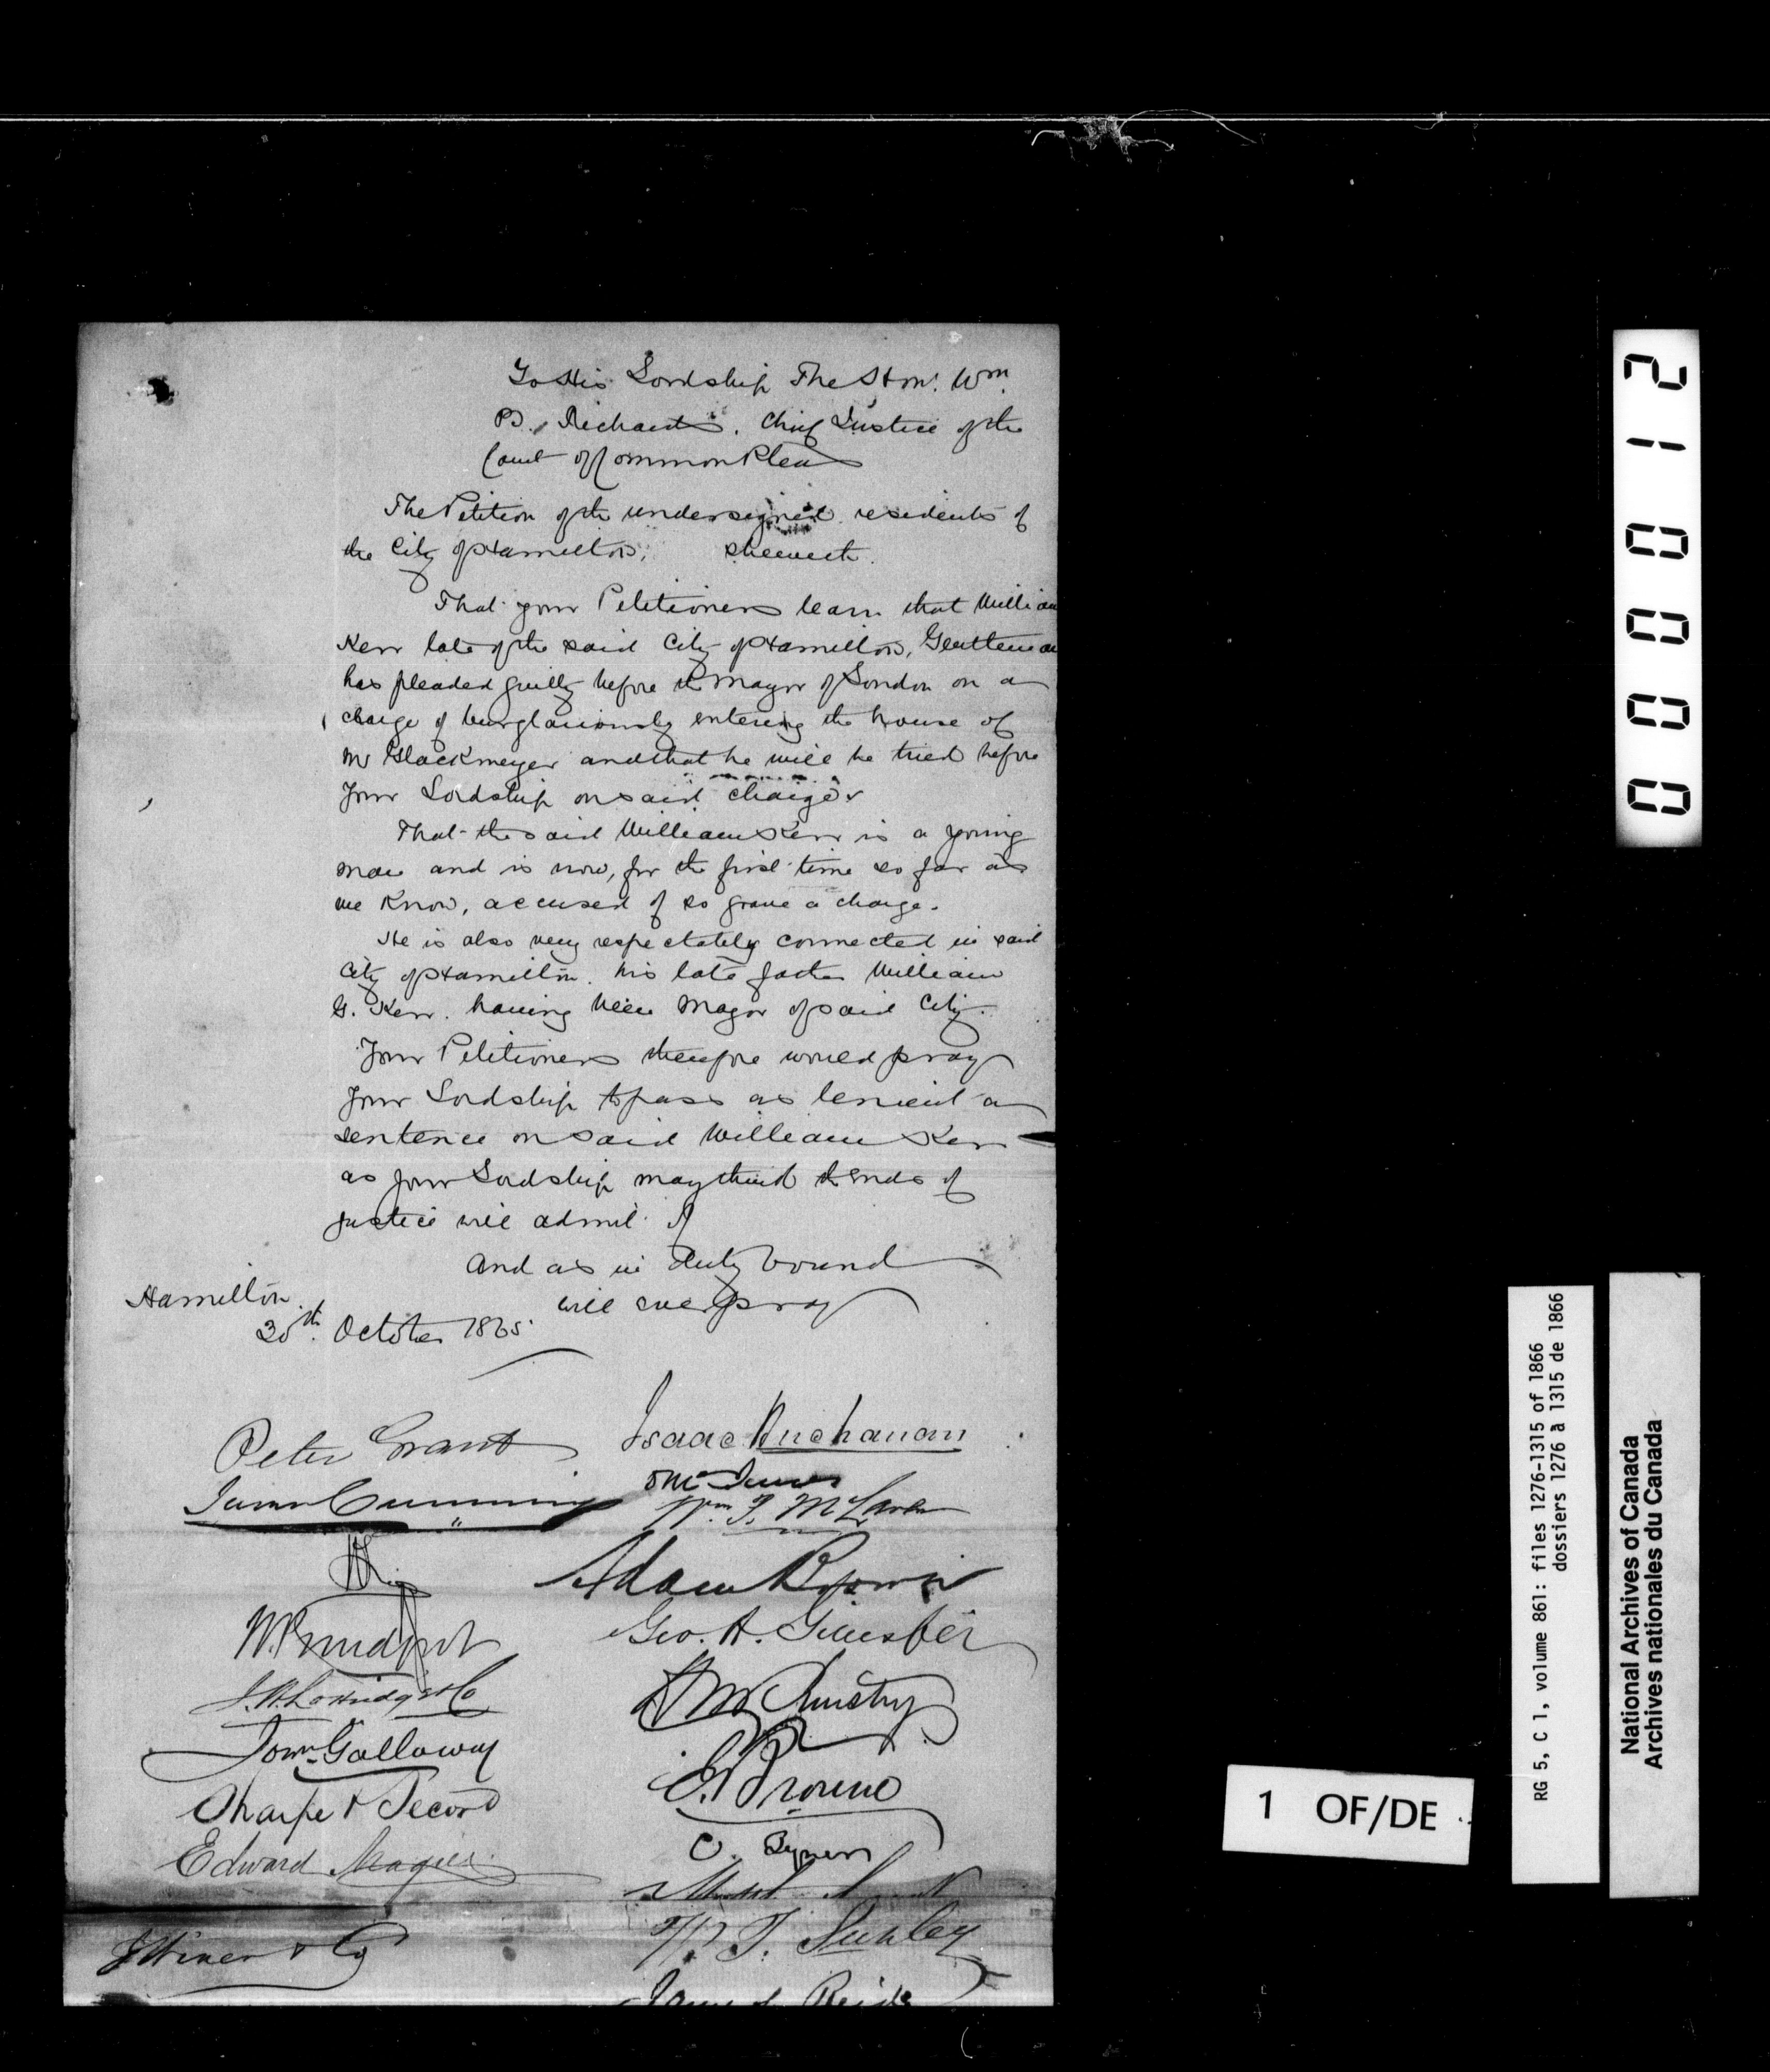 To His Lordship The Hon. Wm.
B. Richards. Chief Justice of the
Court of Common Pleas
The Petition of the undersigned residents of
the City of Hamilton, sheweth.
That your Petitioners learn that William
Kerr late of the said City of Hamilton, Gentleman
has pleaded guilty before the Mayor of London on a
charge of burglariously entering the house of
Mr Glackmeyer and that he will be tried before
your Lordship on said charge.
That the said William Kerr is a young
man and is now, for the first time so far as
we know, accused of so grave a charge.
He is also very respectably connected in said
City of Hamilton. his late father William
G. Kerr. having been Mayor of said City.
Your Petitioners therefore would pray
your Lordship to pass as lenient a
sentence on said William Kerr
as your Lordship may think the ends of
justice will admit of
And as in duty bound
will ever pray
Hamilton.
30th. October 1865.
Peter Grant
Isaac Buchanan
James Cumming
D McInnes
Wm. F. McLaren
Adam Brown
Geo. H. Gillespie
J. W. Lottridge & Co
John Galloway
E. Browne
Sharpe & Secord
Edward Magill
J Winer & Co
James Reid
21000
1 OF/DE
RG 5, C 1, volume 861: files 1276-1315 of 1866
dossiers 1276 à 1315 de 1866
National Archives of Canada
Archives nationales du Canada